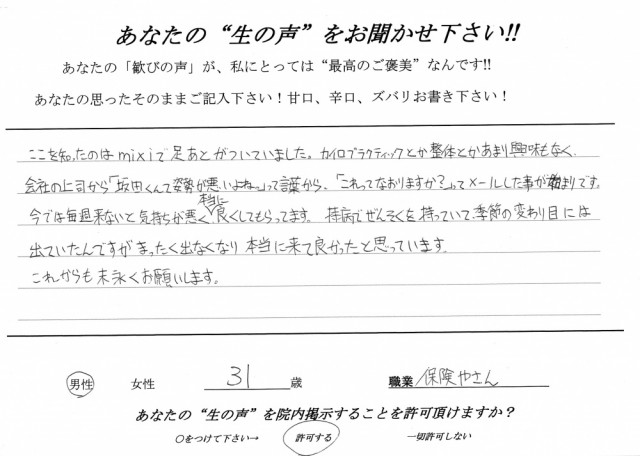 あなたの“生の声”をお聞かせ下さい!!
あなたの「歓びの声」が、私にとっては“最高のご褒美”なんです!!
あなたの思ったそのままご記入下さい！甘口、辛口、ズバリお書き下さい！
ここを知ったのはmixiで足あとがついていました。カイロプラクティックとか整体とかあまり興味もなく、
会社の上司から「坂田くんて姿勢が悪いよね。」って言葉から、「これってなおりますか？」ってメールした事が始まりです。
今では毎週来ないと気持ちが悪く、本当に良くしてもらってます。持病でぜんそくを持っていて、季節の変わり目には
出ていたんですがまったく出なくなり本当に来て良かったと思っています。
これからも末永くお願いします。
男性 女性 31 歳 職業 保険やさん
あなたの“生の声”を院内掲示することを許可頂けますか？
○をつけて下さい→ 許可する 一切許可しない